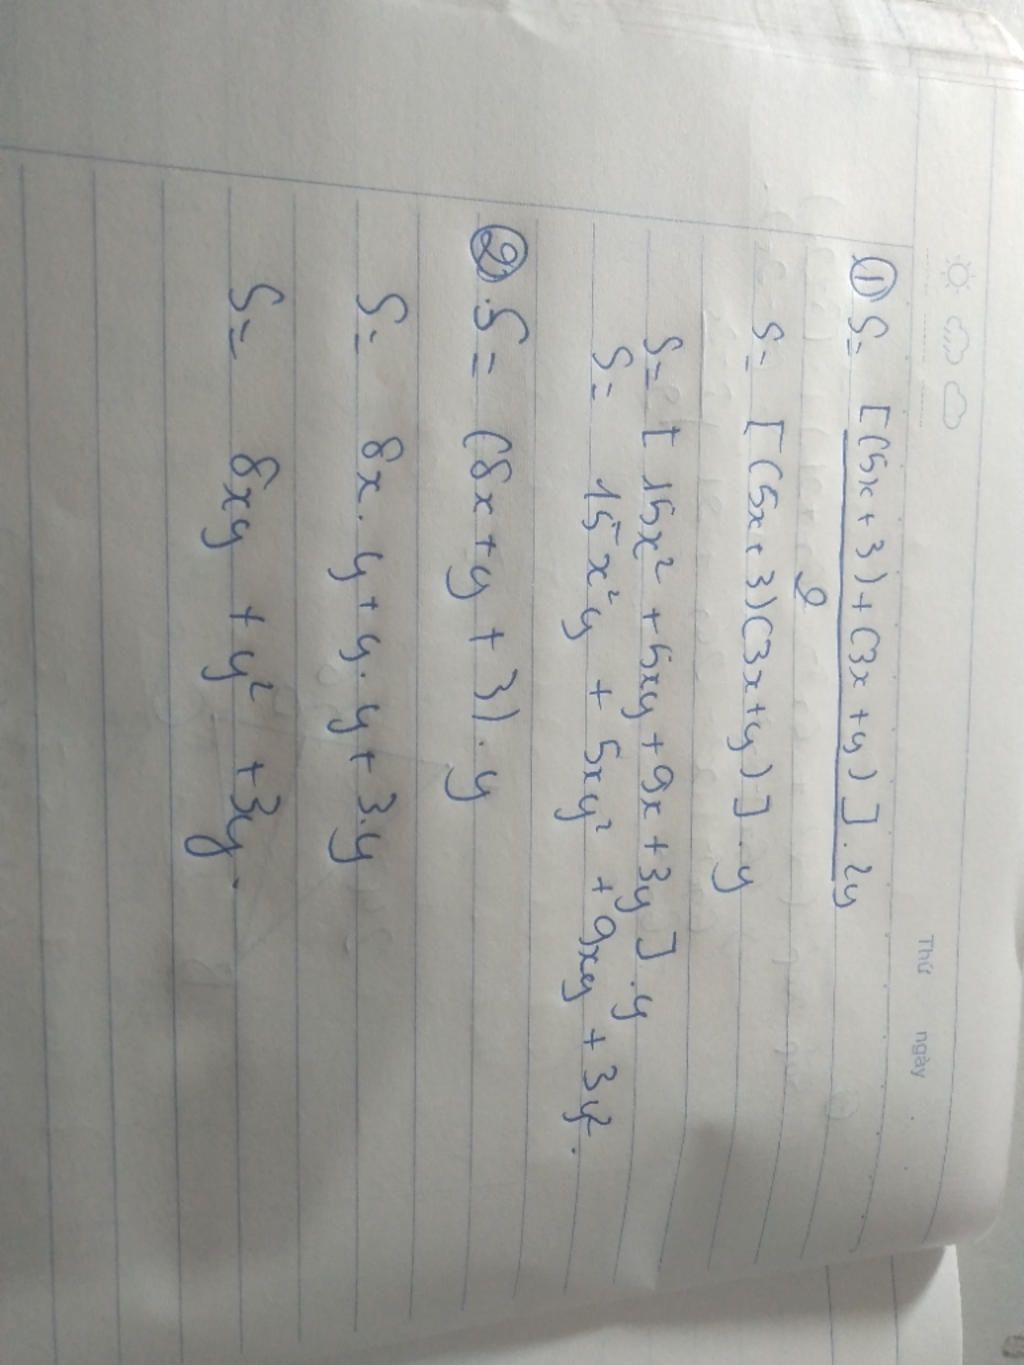 Thứ ngày
① S = [(5x+3)+(3x+y)].2y
2
S = [(5x+3)(3x+y)].y
S = [15x² + 5xy + 9x + 3y].y
S = 15x²y + 5xy² + 9xy + 3y².
②. S = (8x+y+3).y
S = 8x.y+y.y+3.y
S = 8xy + y² + 3y.